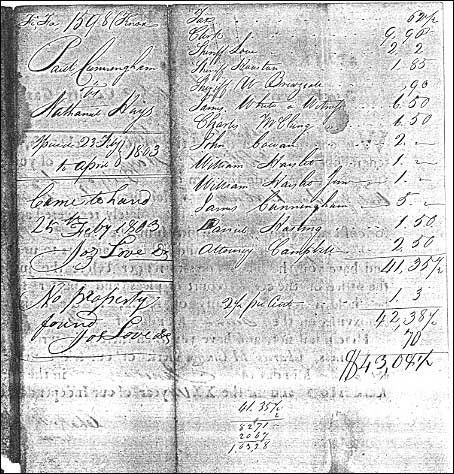 Fi. Fa. 1598 Knox
Paul Cunningham
vs
Nathaniel Hays
Issued 23 Feby 1803
to April
Came to hand
25th Feby 1803
Jos Love
No property
found
Jos Love
Tax 62½
Clerk 9.90
Sheriff Love 2 2
Sheriff Houston 1.85
Sheriff W Breazeale .90
James White a Witness 6.50
Charles McClung 6.50
John Cowan 2.–
William 1.–
William Junr 1.–
James Cunningham 5.–
Daniel 1.50
Attorney Campbell 2.50
41,35½
2½ per Cent 1.3
42,38½
70
$43,08½
41.35½
2½
8271
2067
1.0338